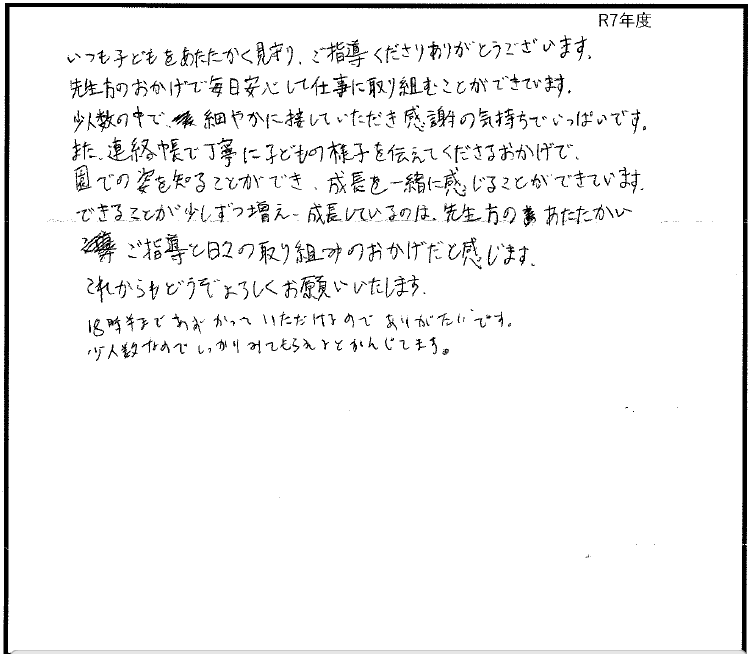 R7年度
いつも子どもをあたたかく見守り、ご指導くださりありがとうございます。
先生方のおかげで毎日安心して仕事に取り組むことができています。
少人数の中で、細やかに接していただき感謝の気持ちでいっぱいです。
また、連絡帳で丁寧に子どもの様子を伝えてくださるおかげで、
園での姿を知ることができ、成長を一緒に感じることができています。
できることが少しずつ増え、成長しているのは、先生方のあたたかい
ご指導と日々の取り組みのおかげだと感じます。
これからもどうぞよろしくお願いいたします。
18時半まであずかっていただけるのでありがたいです。
少人数なのでしっかりみてもらえるとかんじてます。